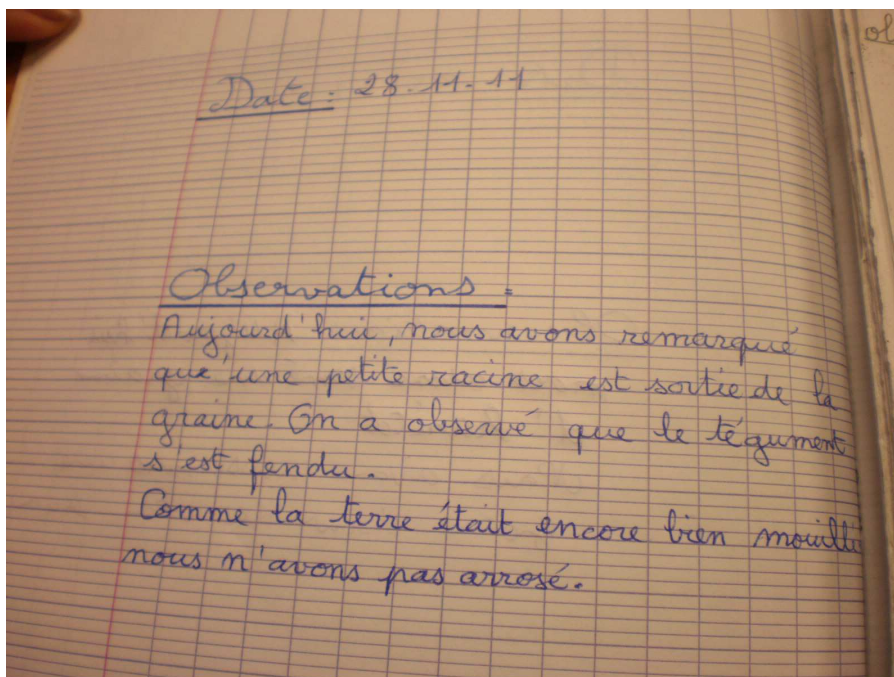 Date: 28-11-11
Observations:
Aujourd'hui, nous avons remarqué
que'une petite racine est sortie de la
graine. On a observé que le tégument
s'est fendu.
Comme la terre était encore bien mouillé
nous n'avons pas arrosé.